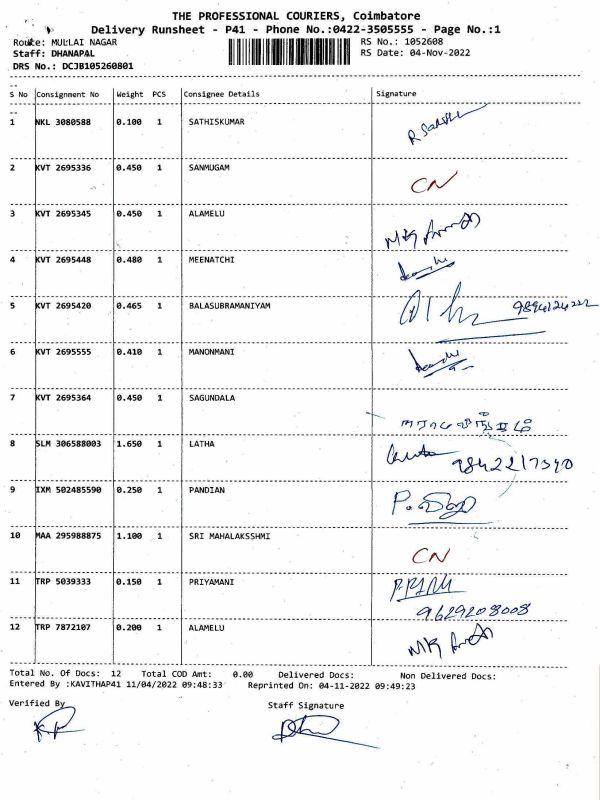 THE PROFESSIONAL COURIERS, Coimbatore
Delivery Runsheet - P41 - Phone No.:0422-3505555 - Page No.:1
Route: MULLAI NAGAR RS No.: 1052608
Staff: DHANAPAL RS Date: 04-Nov-2022
DRS No.: DCJB105260801
S No Consignment No Weight PCS Consignee Details Signature
1 NKL 3080588 0.100 1 SATHISKUMAR
2 KVT 2695336 0.450 1 SANMUGAM CN
3 KVT 2695345 0.450 1 ALAMELU
4 KVT 2695448 0.480 1 MEENATCHI
5 KVT 2695420 0.465 1 BALASUBRAMANIYAM
6 KVT 2695555 0.410 1 MANONMANI
7 KVT 2695364 0.450 1 SAGUNDALA
8 SLM 306588003 1.650 1 LATHA
9 IXM 502485590 0.250 1 PANDIAN
10 MAA 295988875 1.100 1 SRI MAHALAKSSHMI CN
11 TRP 5039333 0.150 1 PRIYAMANI
9629208008
12 TRP 7872107 0.200 1 ALAMELU
Total No. Of Docs: 12 Total COD Amt: 0.00 Delivered Docs: Non Delivered Docs:
Entered By :KAVITHAP41 11/04/2022 09:48:33 Reprinted On: 04-11-2022 09:49:23
Verified By Staff Signature